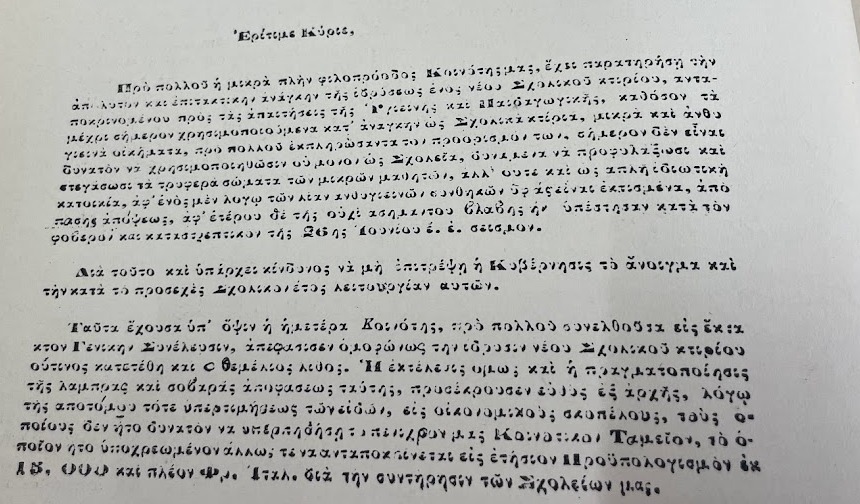 Ἐρίτιμε Κύριε,
Πρὸ πολλοῦ ἡ μικρὰ πλὴν φιλοπρόοδος Κοινότης μας, ἔχει παρατηρήσῃ τὴν
ἀπόλυτον καὶ ἐπιτακτικὴν ἀνάγκην τῆς ἱδρύσεως ἑνὸς νέου Σχολικοῦ κτιρίου, αντα-
ποκρινομένου πρὸς τὰς ἀπαιτήσεις τῆς Ὑγιεινῆς καὶ Παιδαγωγικῆς, καθόσον τὰ
μέχρι σήμερον χρησιμοποιούμενα κατ' ἀνάγκην ὡς Σχολικὰ κτίρια, μικρὰ καὶ ἀνθυ
γιεινὰ οἰκήματα, πρὸ πολλοῦ ἐκπληρώσαντα τον προορισμόν των, σήμερον δὲν εἶναι
δυνατὸν νὰ χρησιμοποιηθῶσιν οὐ μόνον ὡς Σχολεῖα, δυνάμενα νὰ προφυλάξωσι καὶ
στεγάσωσι τὰ τρυφερὰ σώματα τῶν μικρῶν μαθητῶν, ἀλλ' οὔτε καὶ ὡς απλῆ ἰδιωτικὴ
κατοικία, ἀφ' ἑνὸς μὲν λόγῳ τῶν λίαν ανθυγιεινῶν συνθηκῶν ὑφ' ἃς εἶναι ἐκτισμένα, ἀπὸ
πάσης ἀπόψεως, ἀφ' ἑτέρου δὲ τῆς οὐχὶ ασημάντου βλάβης ἣν ὑπέστησαν κατὰ τὸν
φοβερὸν καὶ καταστρεπτικὸν τῆς 26ης Ἰουνίου ἐ. ἔ. σεισμον.
Διὰ τοῦτο καὶ ὑπάρχει κίνδυνος νὰ μὴ ἐπιτρέψῃ ἡ Κυβέρνησις τὸ ἄνοιγμα καὶ
τὴν κατὰ τὸ προσεχὲς Σχολικὸν ἔτος λειτουργίαν αυτῶν.
Ταῦτα ἔχουσα ὑπ' ὄψιν ἡ ἡμετέρα Κοινότης, πρὸ πολλοῦ συνελθοῦσα εἰς ἔκτα
κτον Γενικὴν Συνέλευσιν, ἀπεφάσισεν ὁμοφώνως τὴν ιδρυσιν νέου Σχολικοῦ κτιρίου
οὕτινος κατετέθη καὶ ὁ θεμέλιος λίθος. Ἡ ἐκτέλεσις ομως καὶ ἡ πραγματοποίησις
τῆς λαμπρᾶς καὶ σοβαρᾶς ἀποφάσεως ταύτης, προσέκρουσεν εὐθὺς ἐξ ἀρχῆς, λόγῳ
τῆς αποτόμου τότε υπερτιμήσεως τῶν εἰδῶν, εἰς οἰκονομικοὺς σκοπέλους, τοὺς ὁ-
ποίους δεν ἦτο δυνατὸν νὰ υπερπηδήσῃ τὸ πενιχρὸν μας Κοινοτικὸν Ταμεῖον, τὸ ὁ-
ποῖον ητο ὑποχρεωμένον ἄλλως τε να ανταποκρίνεται εἰς ἐτήσιον Προϋπολογισμὸν ἐκ
15. 000 καὶ πλέον Φρ. Ἰταλ. διὰ τὴν συντήρησιν τῶν Σχολείων μας.